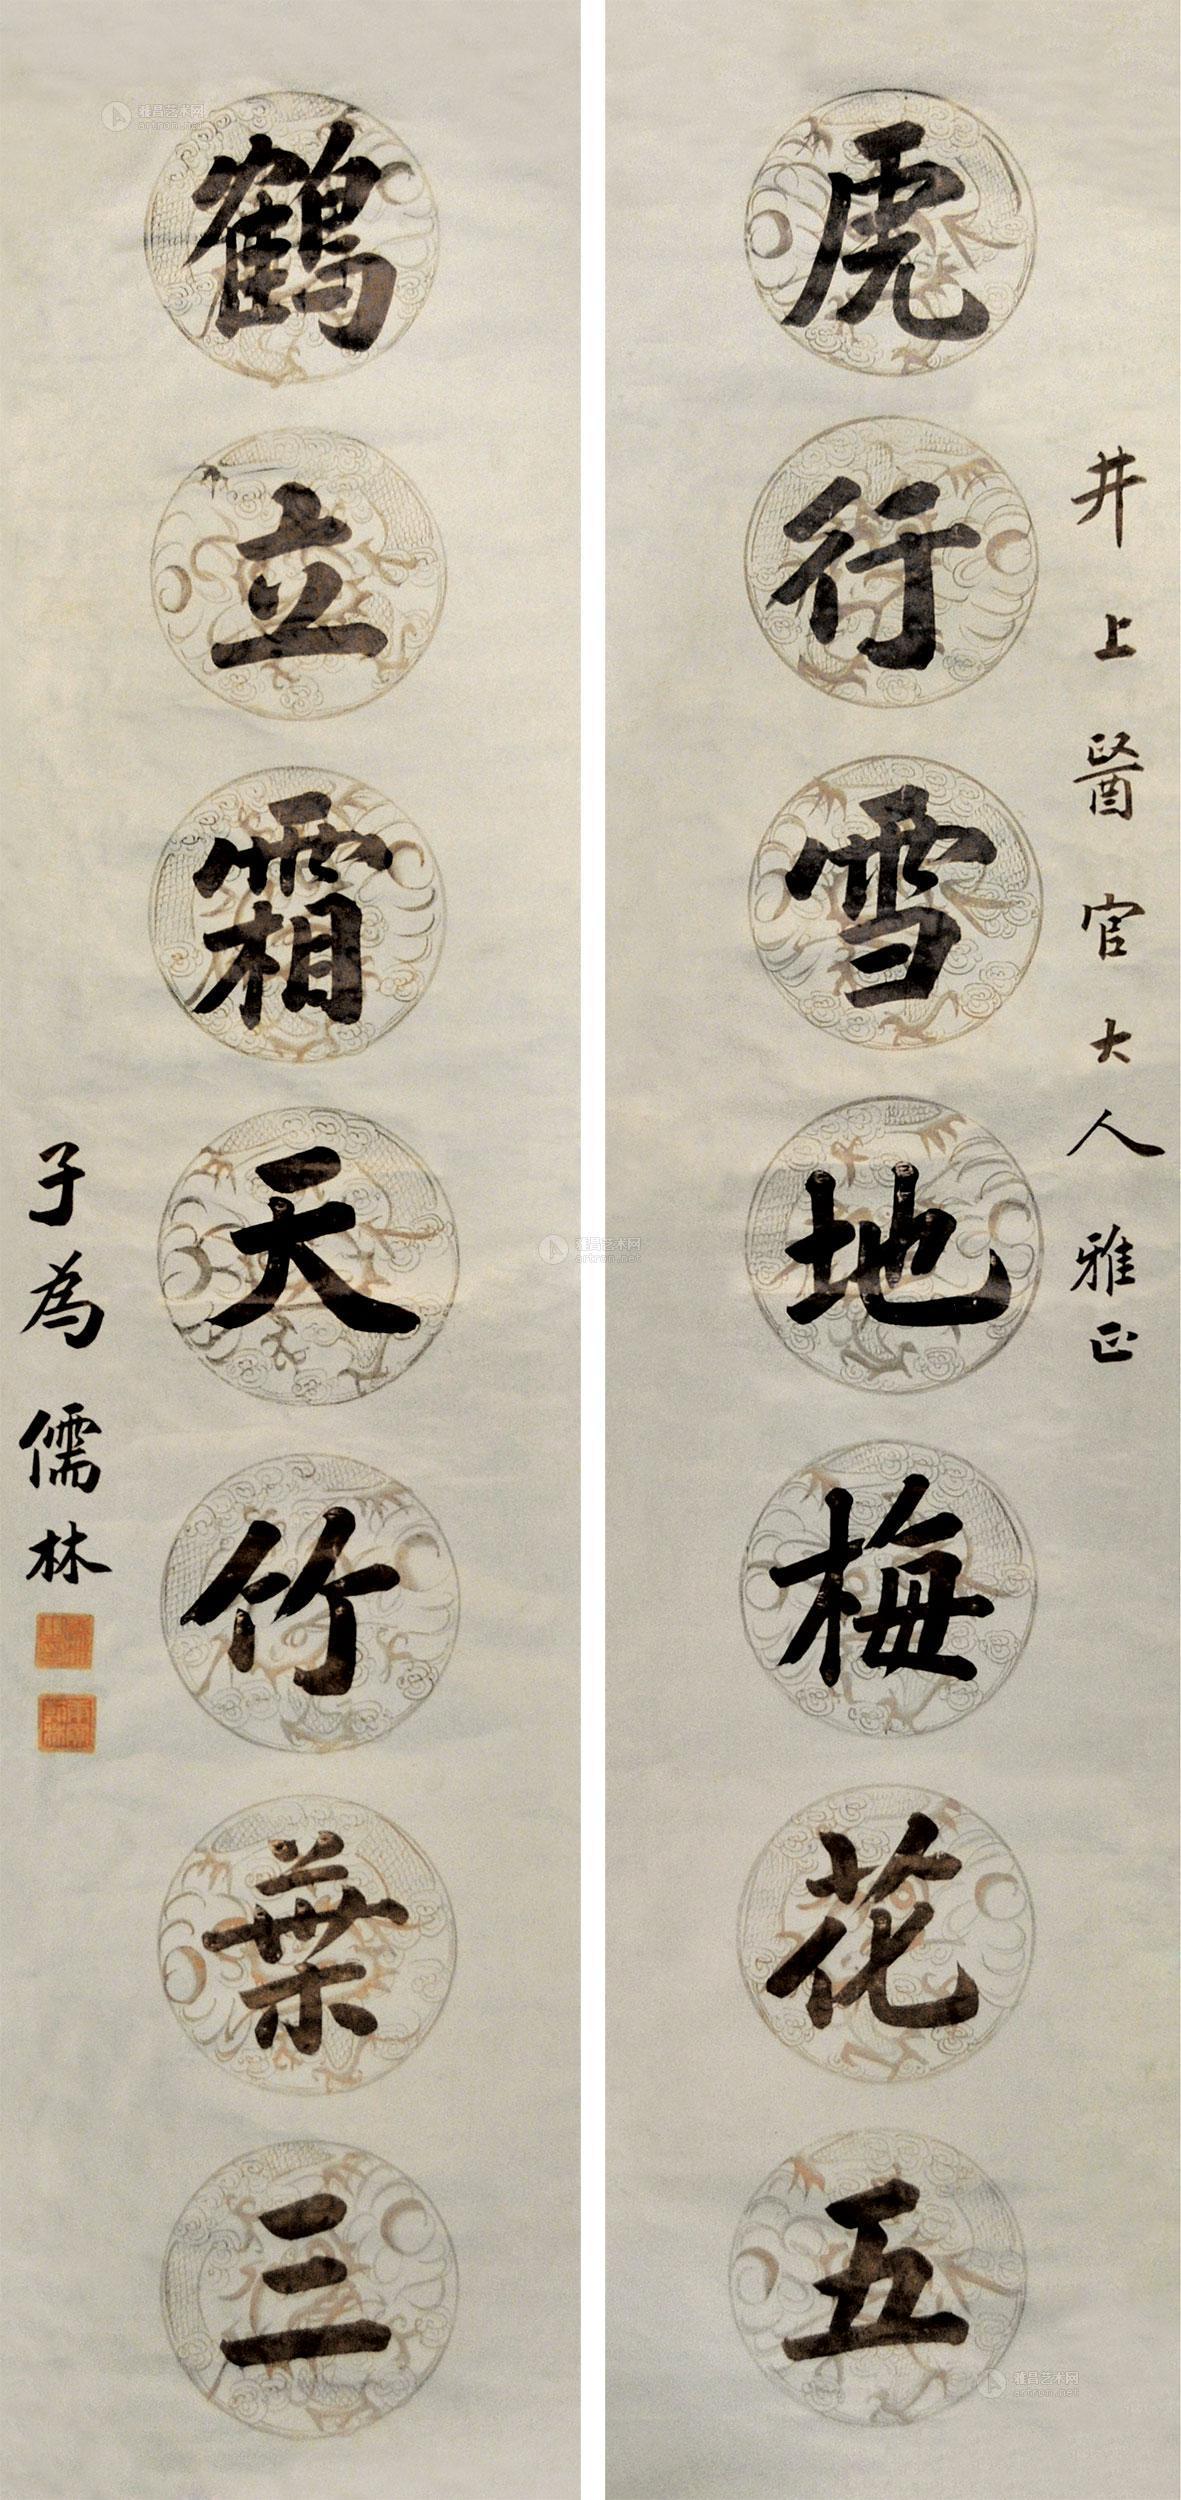 井上醫官大人雅正
虎行雪地梅花五
鶴立霜天竹葉三
子為儒林
雅昌艺术网
artron.net
雅昌艺术网
artron.net
雅昌艺术网
artron.net